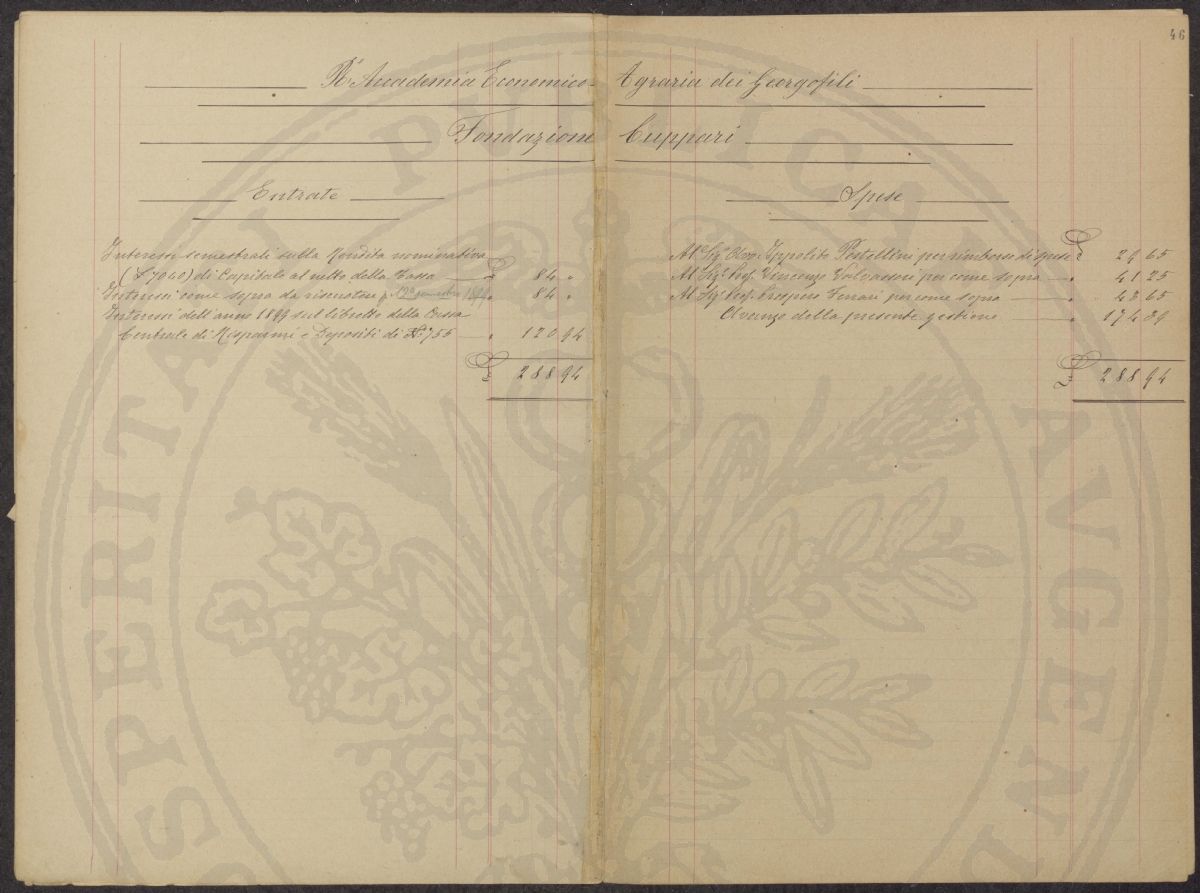 46
Rª Accademia Economico-Agraria dei Georgofili
Fondazione Cuppari
Entrate
Interessi semestrali sulla Rendita nominativa
(£ 7040) di Capitale al netto della Tassa £ 84 "
Interessi come sopra da riscuotere p. il 2º semestre 1899 " 84 "
Interessi dell'anno 1899 sul libretto della Cassa
Centrale di Risparmi e Depositi di Nº 755 " 120 94
£ 288 94
Spese
Al Sigr Avv. Ippolito Pestellini per rimborso di spese £ 29 65
Al Sigr Prof. Vincenzo Valvassori per come sopra " 41 25
Al Sigr Prof. Prospero Ferrari per come sopra " 43 65
Avanzo della presente gestione " 174 39
£ 288 94
PERITATI PVBLICAE AVGEND